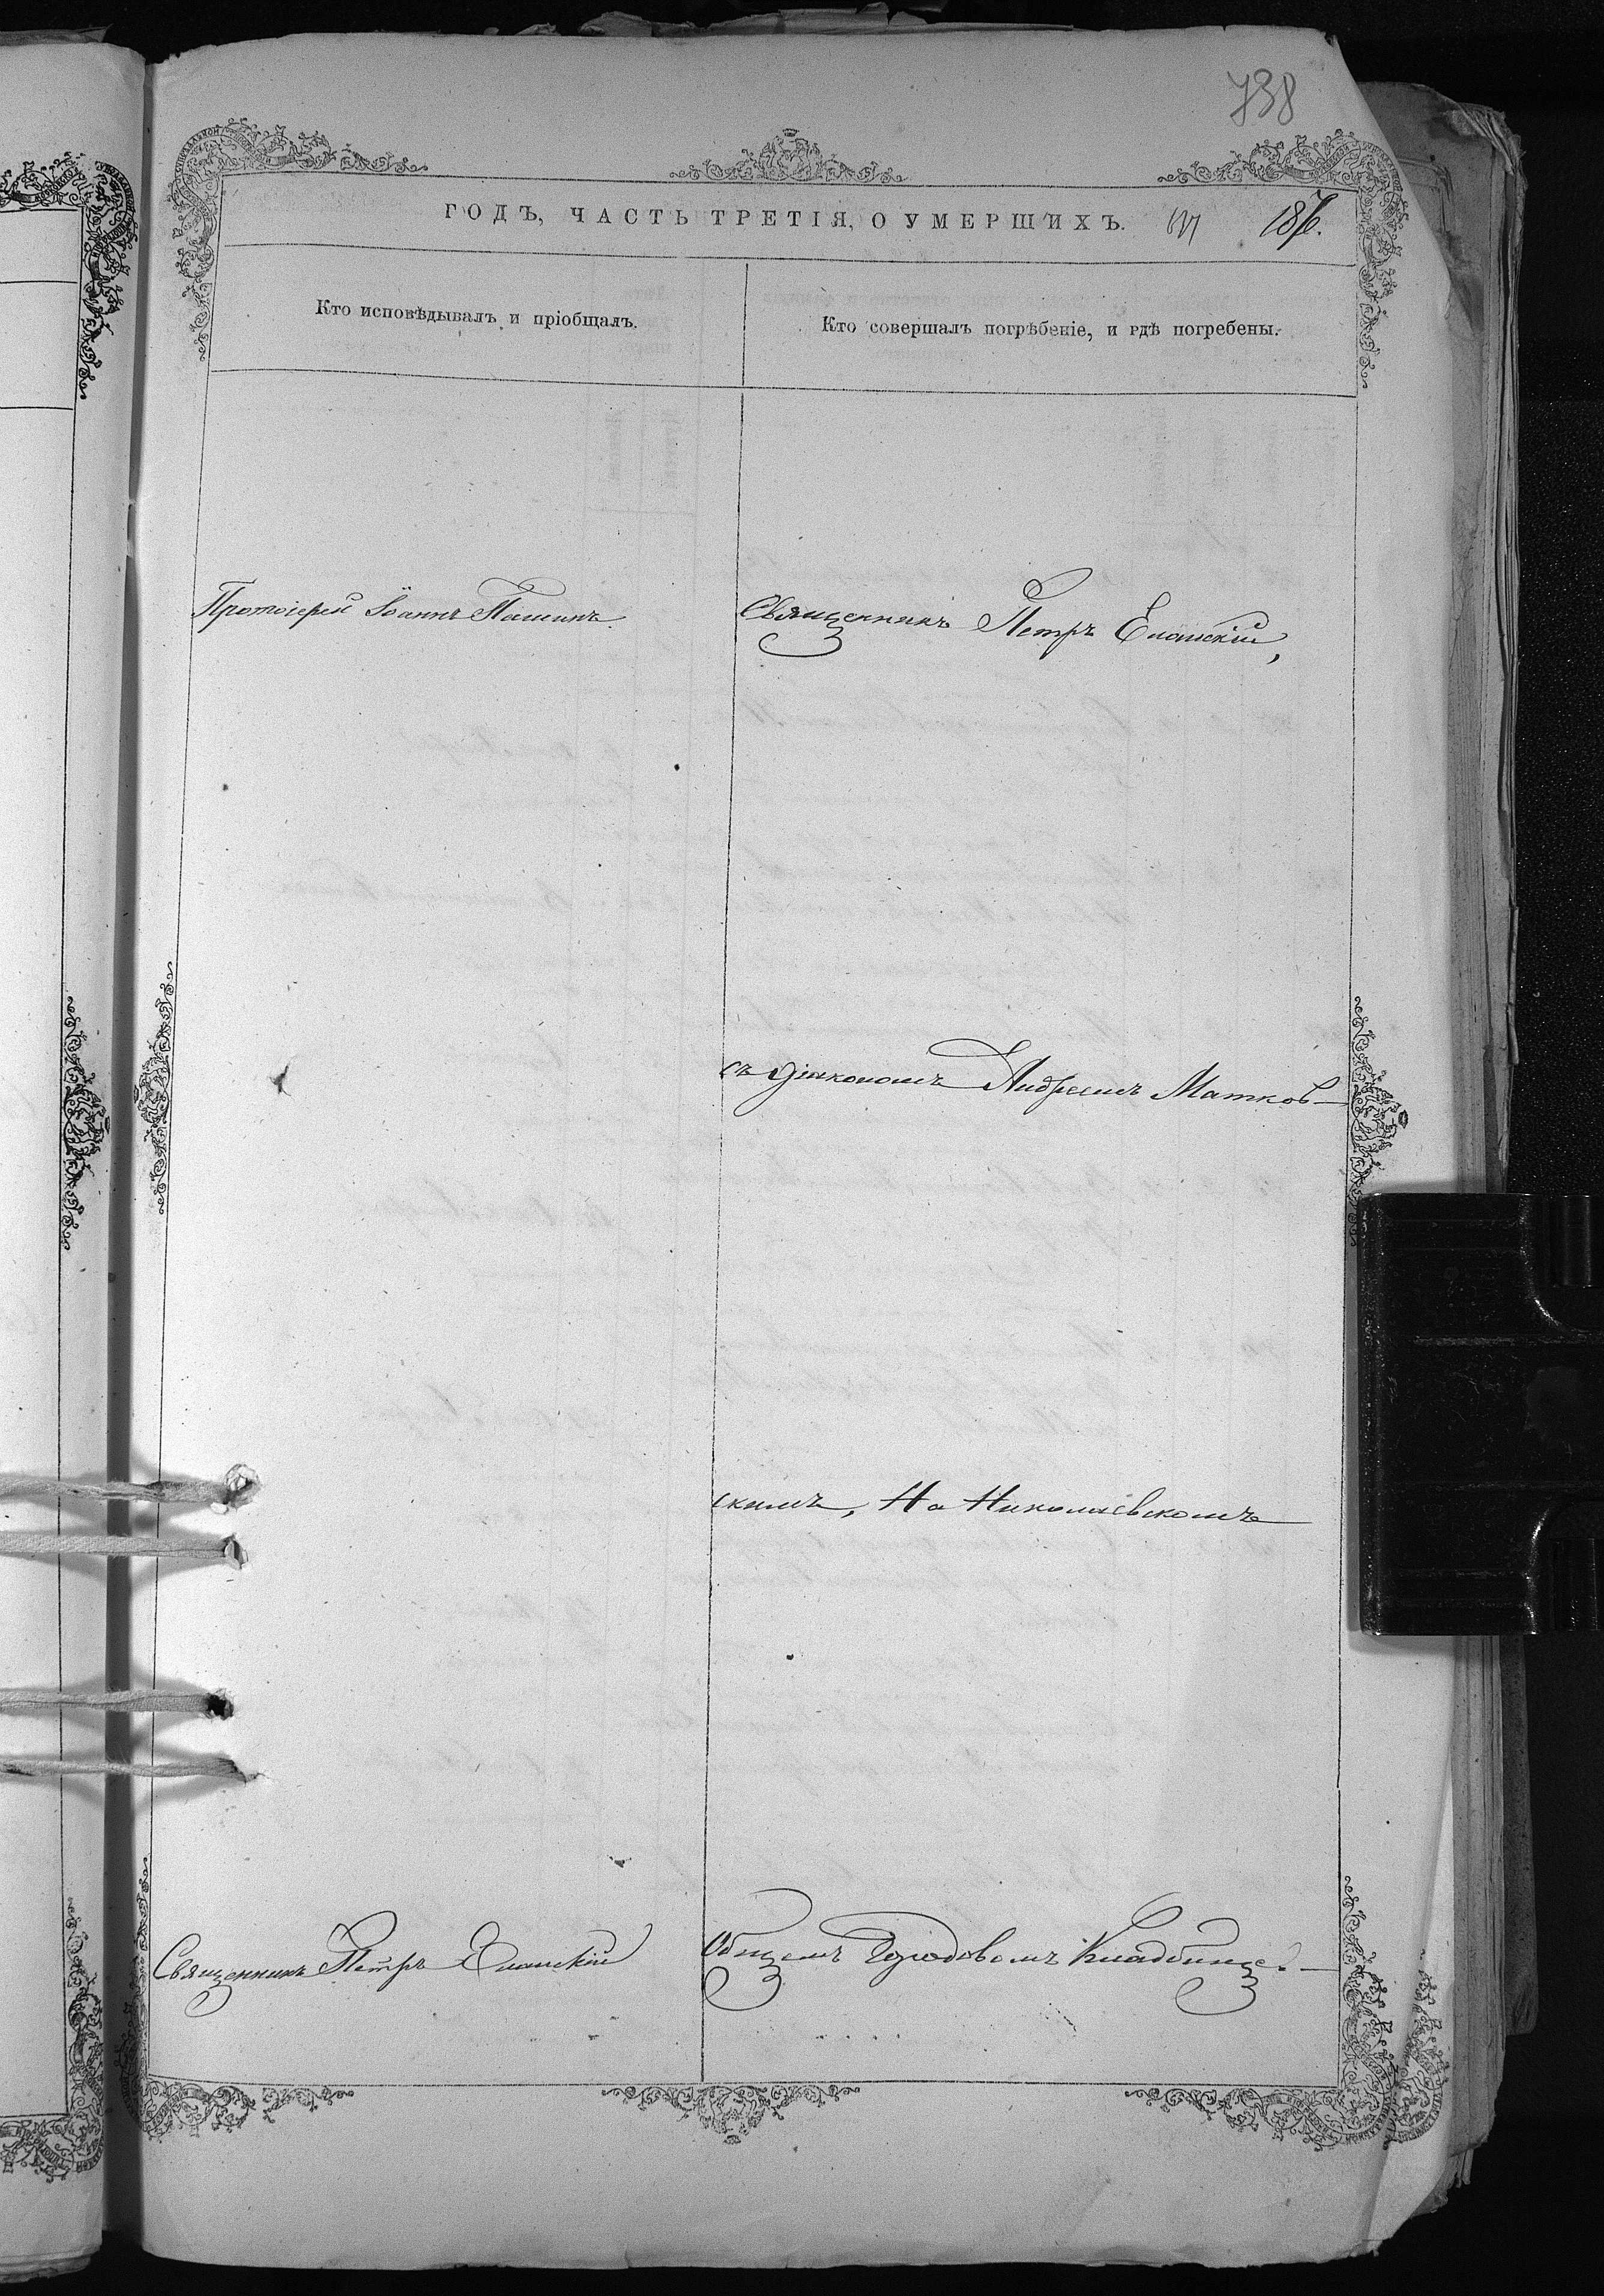 738
ГОДЪ, ЧАСТЬ ТРЕТІЯ, О УМЕРШИХЪ.
Кто исповѣдывалъ и пріобщалъ.
Кто совершалъ погрѣбеніе, и гдѣ погребены.
Протоіерей Іоаннъ Пашинъ.
Священникъ Петръ Еланскій,
съ Діакономъ Андреемъ Матков-
скимъ, На Николаевскомъ
Священникъ Петръ Еланскій
Общемъ Городовомъ Кладбище.